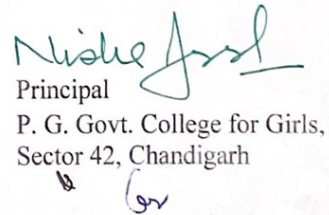 Nisha
Principal
P. G. Govt. College for Girls,
Sector 42, Chandigarh